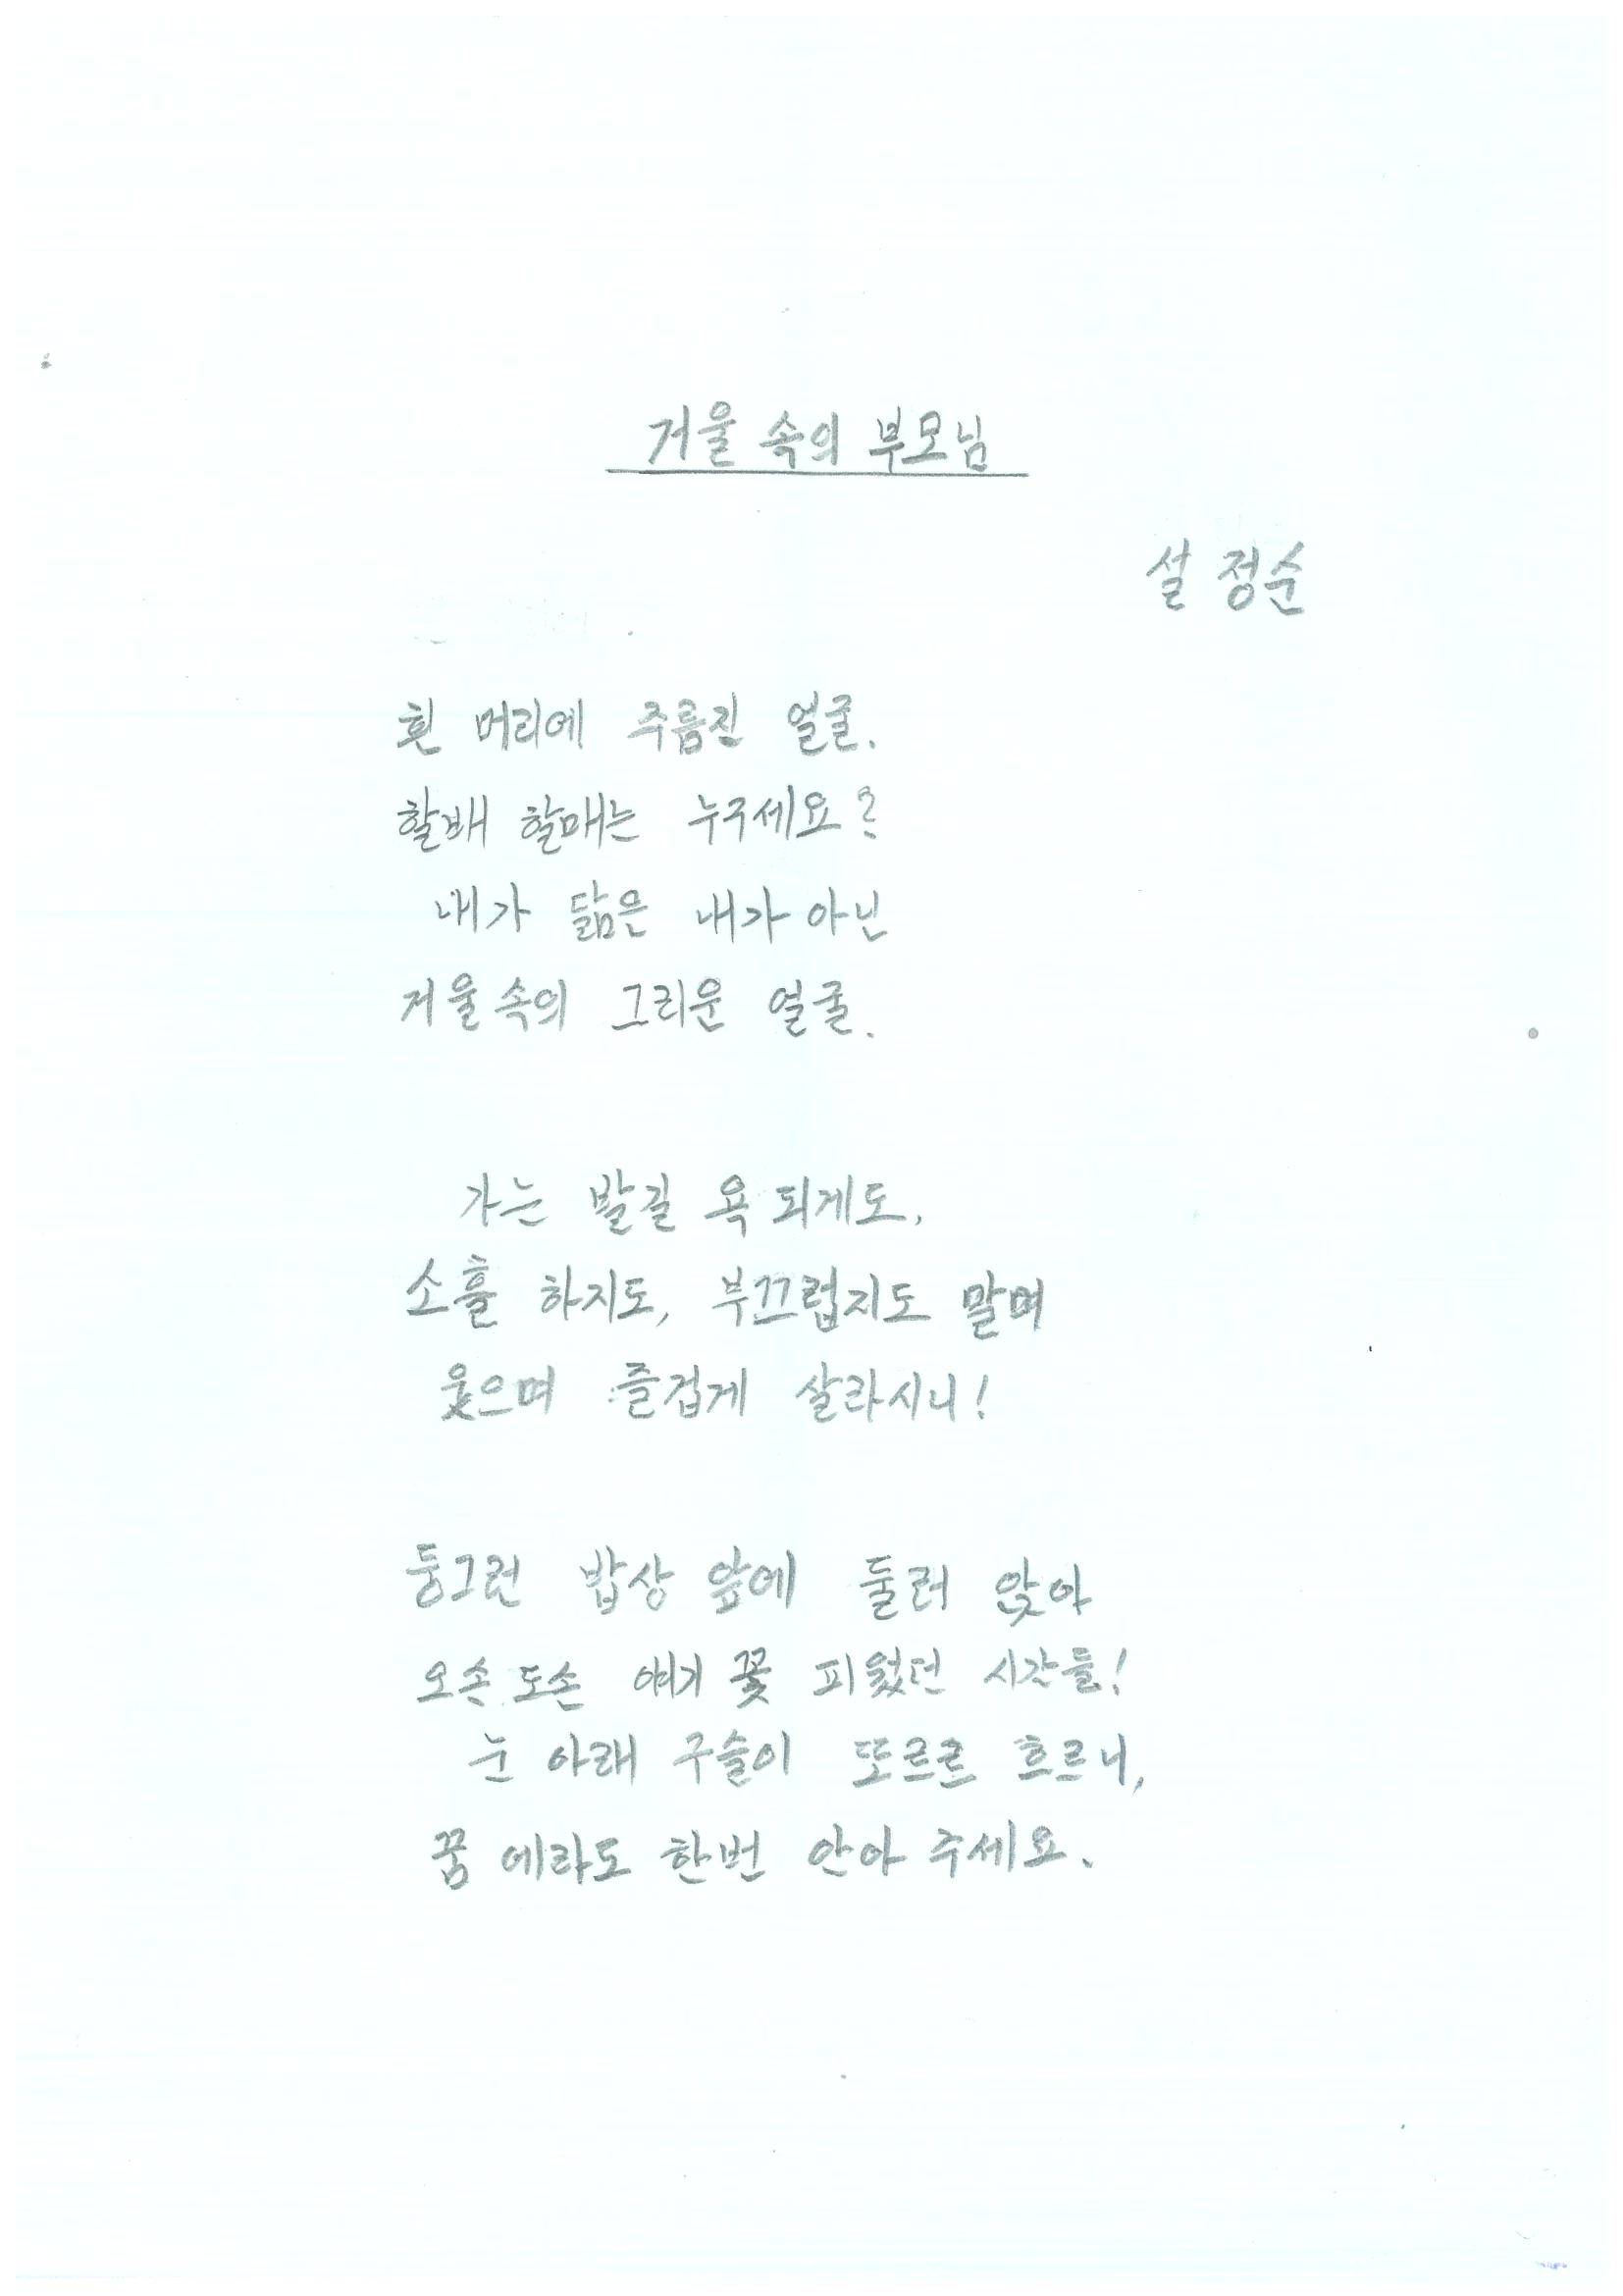 거울 속의 부모님
설 정순
흰 머리에 주름진 얼굴.
할배 할매는 누구세요?
내가 닮은 내가 아닌
거울 속의 그리운 얼굴.
가는 발길 욕 되게도,
소흘 하지도, 부끄럽지도 말며
웃으며 즐겁게 살라시니!
둥그런 밥상 앞에 둘러 앉아
오손 도손 얘기 꽃 피웠던 시간들!
눈 아래 구슬이 또르르 흐르니,
꿈 에라도 한번 안아 주세요.